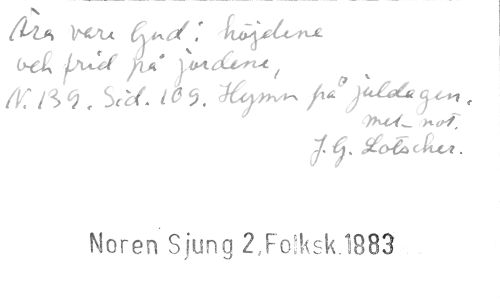 Ära vare Gud i höjdene
och frid på jordene,
N. 139. Sid. 109. Hymn på juldagen.
met_ not.
J. G. Lotscher.
Noren Sjung 2, Folksk. 1883